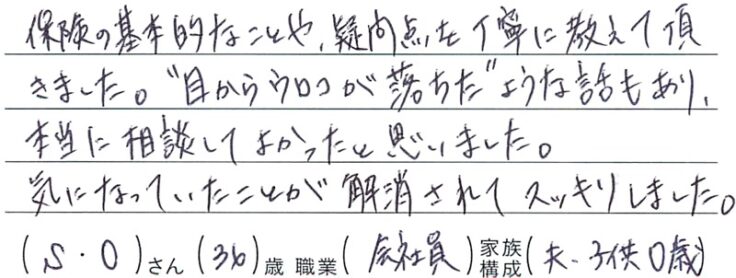 保険の基本的なことや、疑問点を丁寧に教えて頂
きました。"目からウロコが落ちた"ような話もあり、
本当に相談してよかったと思いました。
気になっていたことが解消されてスッキリしました。
(S・O)さん(36)歳 職業(会社員)家族構成(夫、子供0歳)